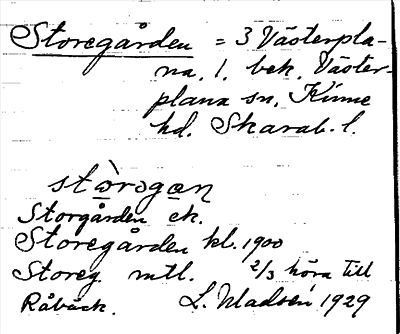 Storegården = 3 Västerpla-
na, 1. bek. Väster-
plana sn, Kinne
hd. Skarab. l.
stò̱rəga̱n
Storgården ek.
Storegården kl. 1900
Storeg. mtl. 2/3 höra till
Råbäck. L. Madsén 1929